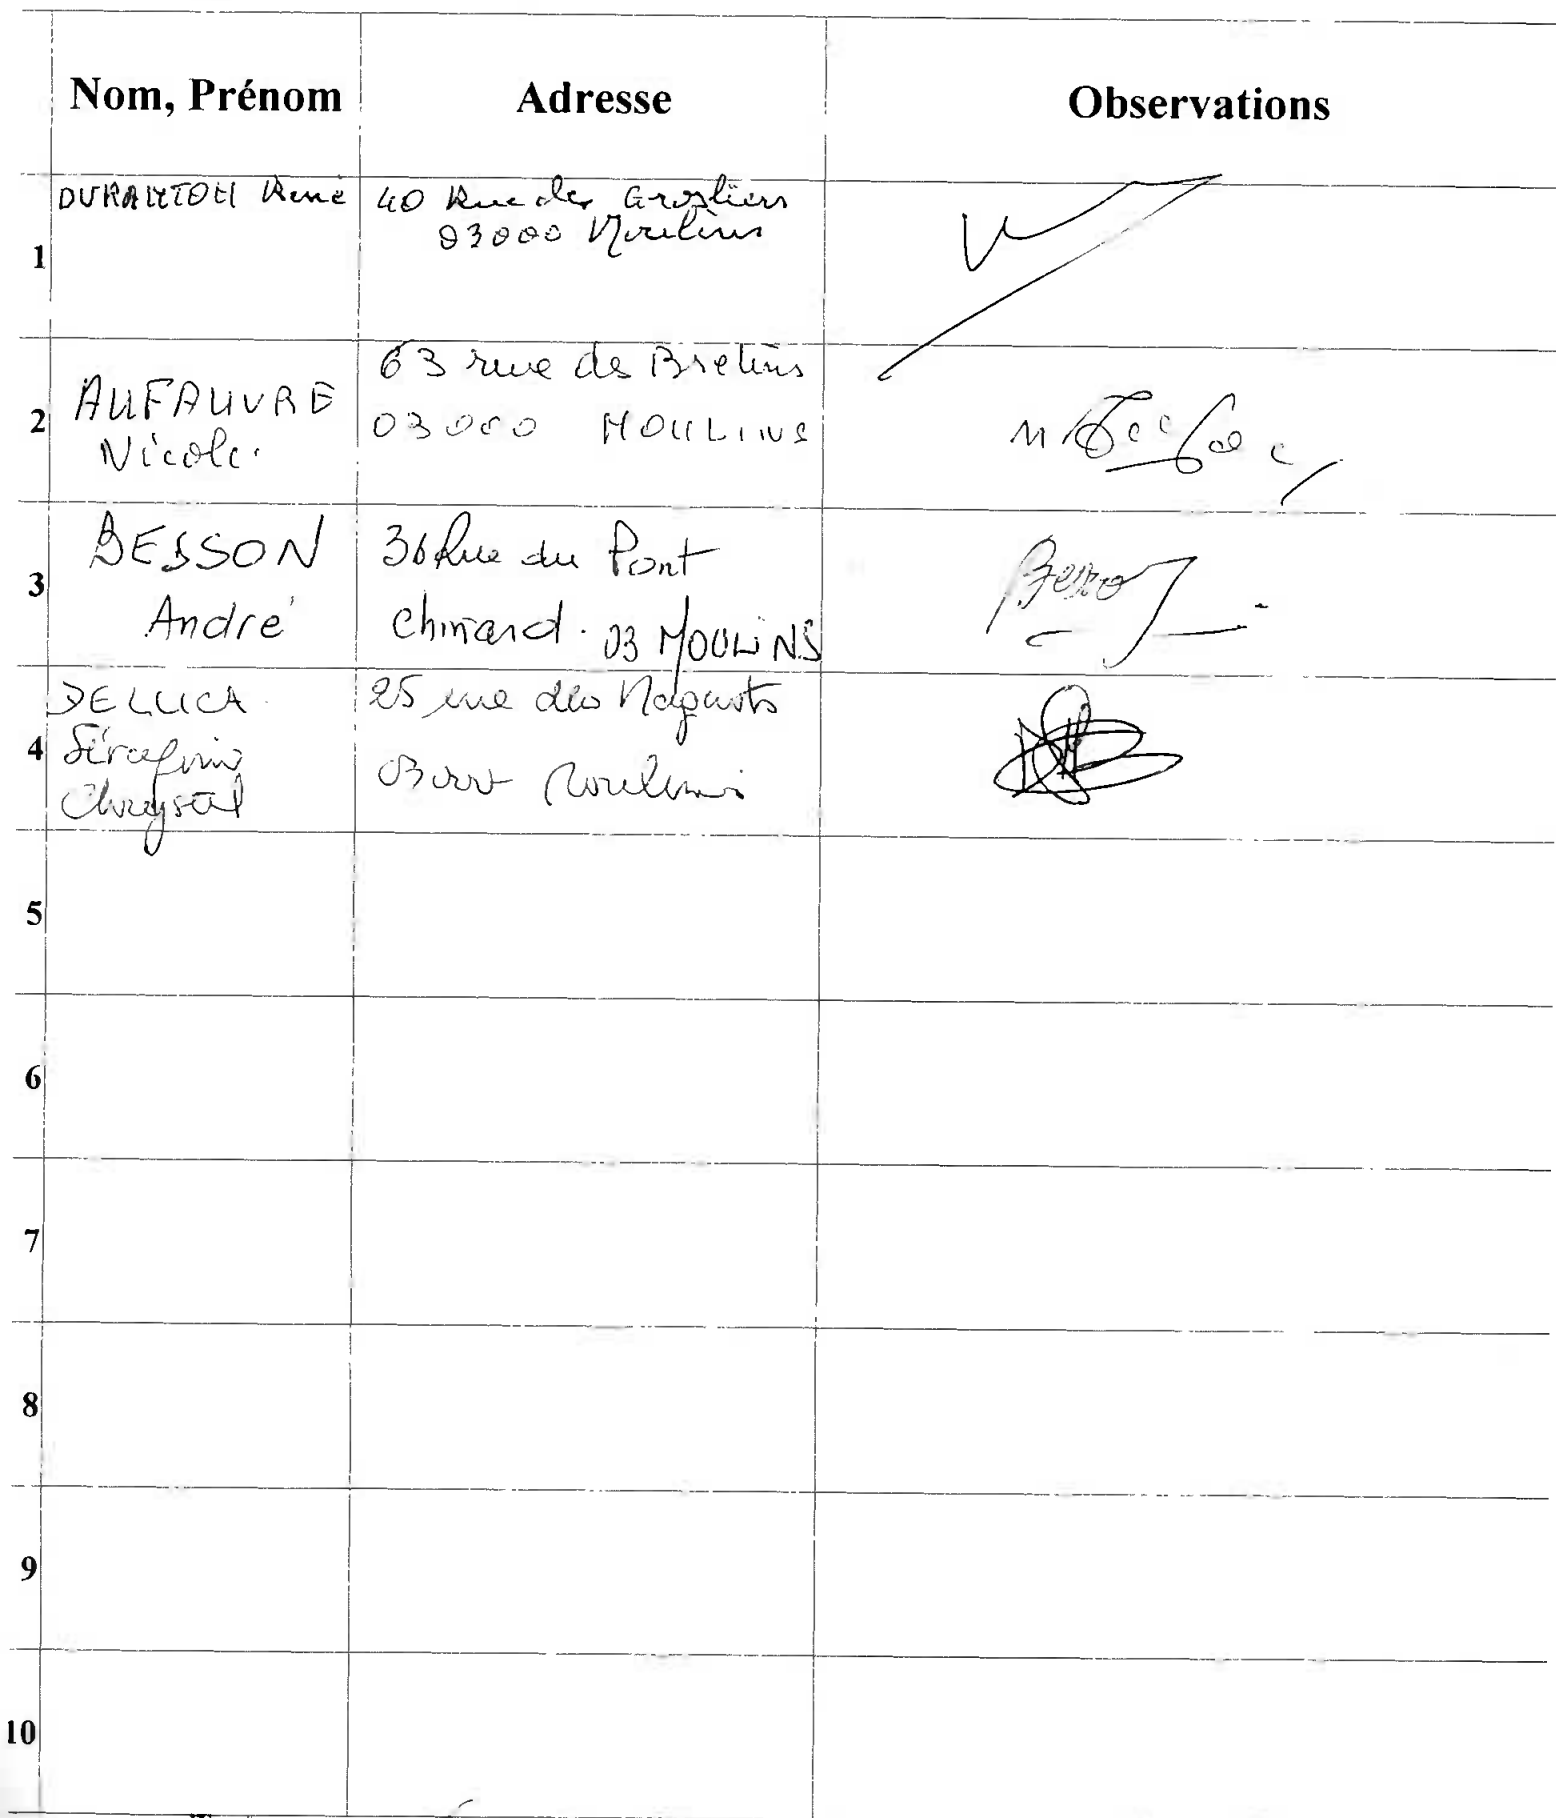 Nom, Prénom
Adresse
Observations
1
DURANTON René
40 Rue des Grostiers
03000 Moulins
2
AUFAUVRE
Nicole.
63 rue de Bretins
03000 MOULINS
3
BESSON
André
36 Rue du Pont
chinard. 03 MOULINS
4
DELUCA
Sérafini
Chrystel
25 rue des
03000 Moulins
5
6
7
8
9
10